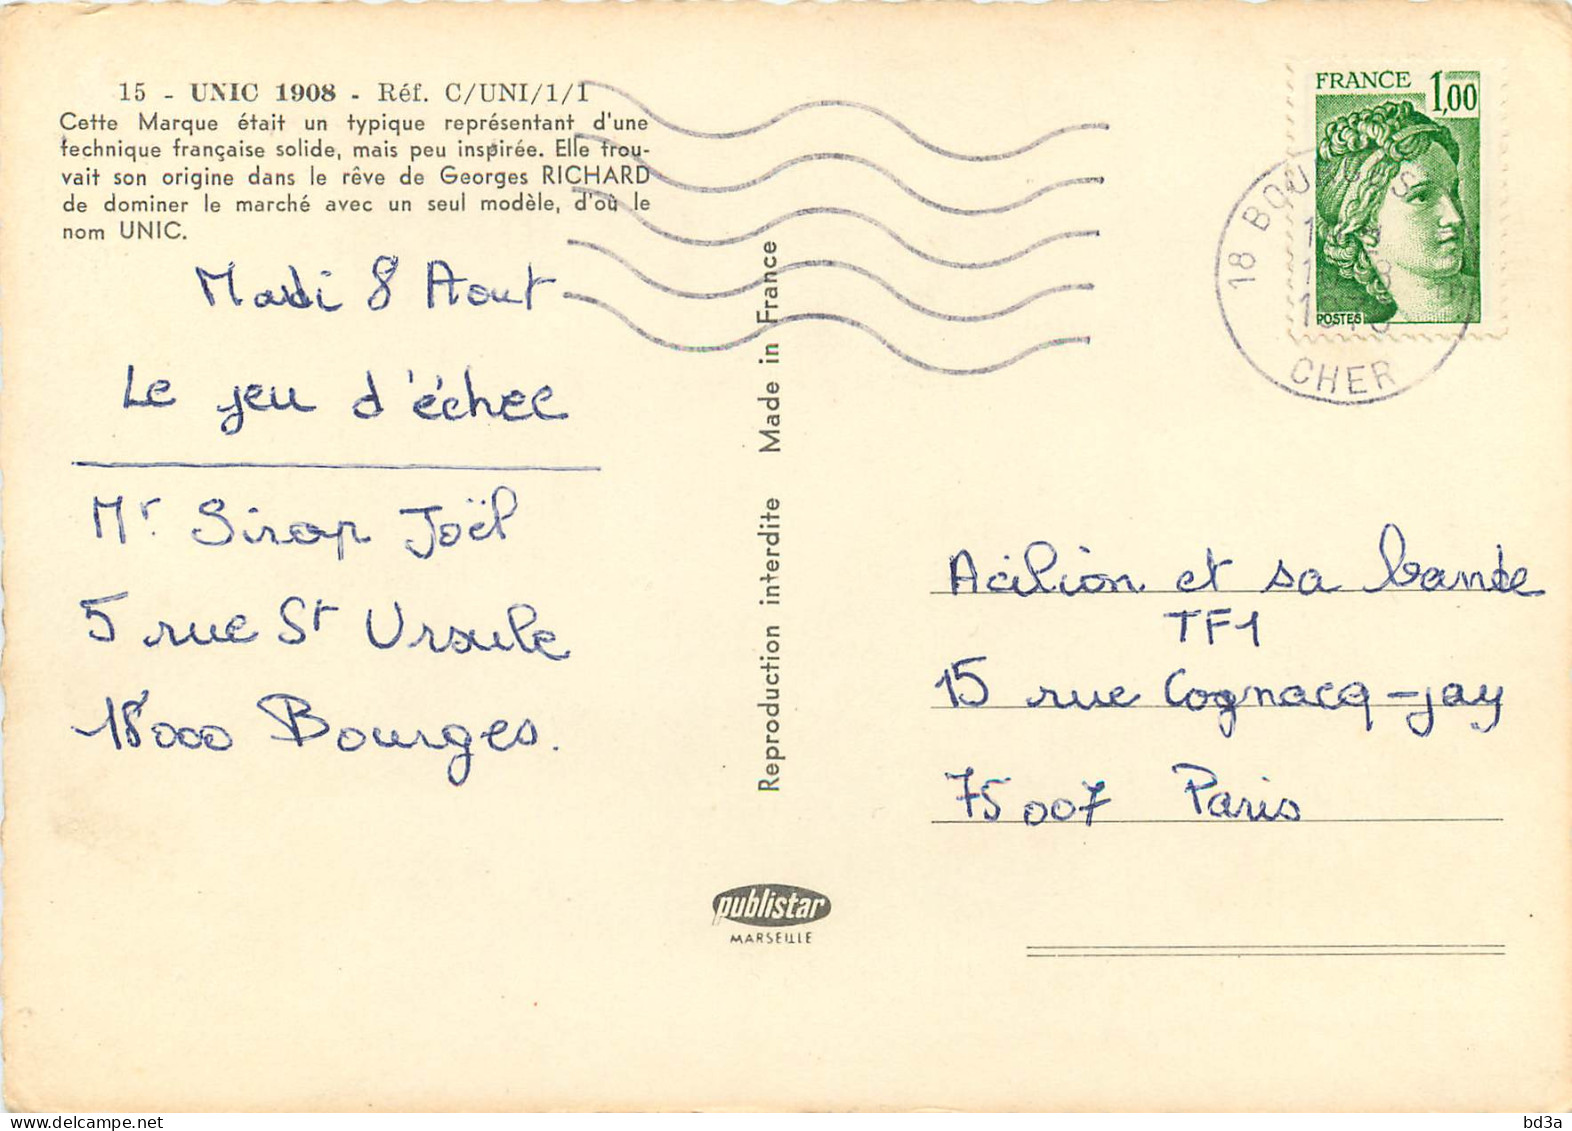 15 - UNIC 1908 - Réf. C/UNI/1/1
Cette Marque était un typique représentant d'une
technique française solide, mais peu inspirée. Elle trou-
vait son origine dans le rêve de Georges RICHARD
de dominer le marché avec un seul modèle, d'où le
nom UNIC.
Mardi 8 Aout
Le jeu d'échec
Mr Sirop Joël
5 rue St Ursule
18000 Bourges.
Reproduction interdite Made in France
publistar
MARSEILLE
FRANCE 1,00
POSTES
18 BOURGES
CHER
Acilion et sa bande
TF1
15 rue Cognacq-jay
75007 Paris
bd3a